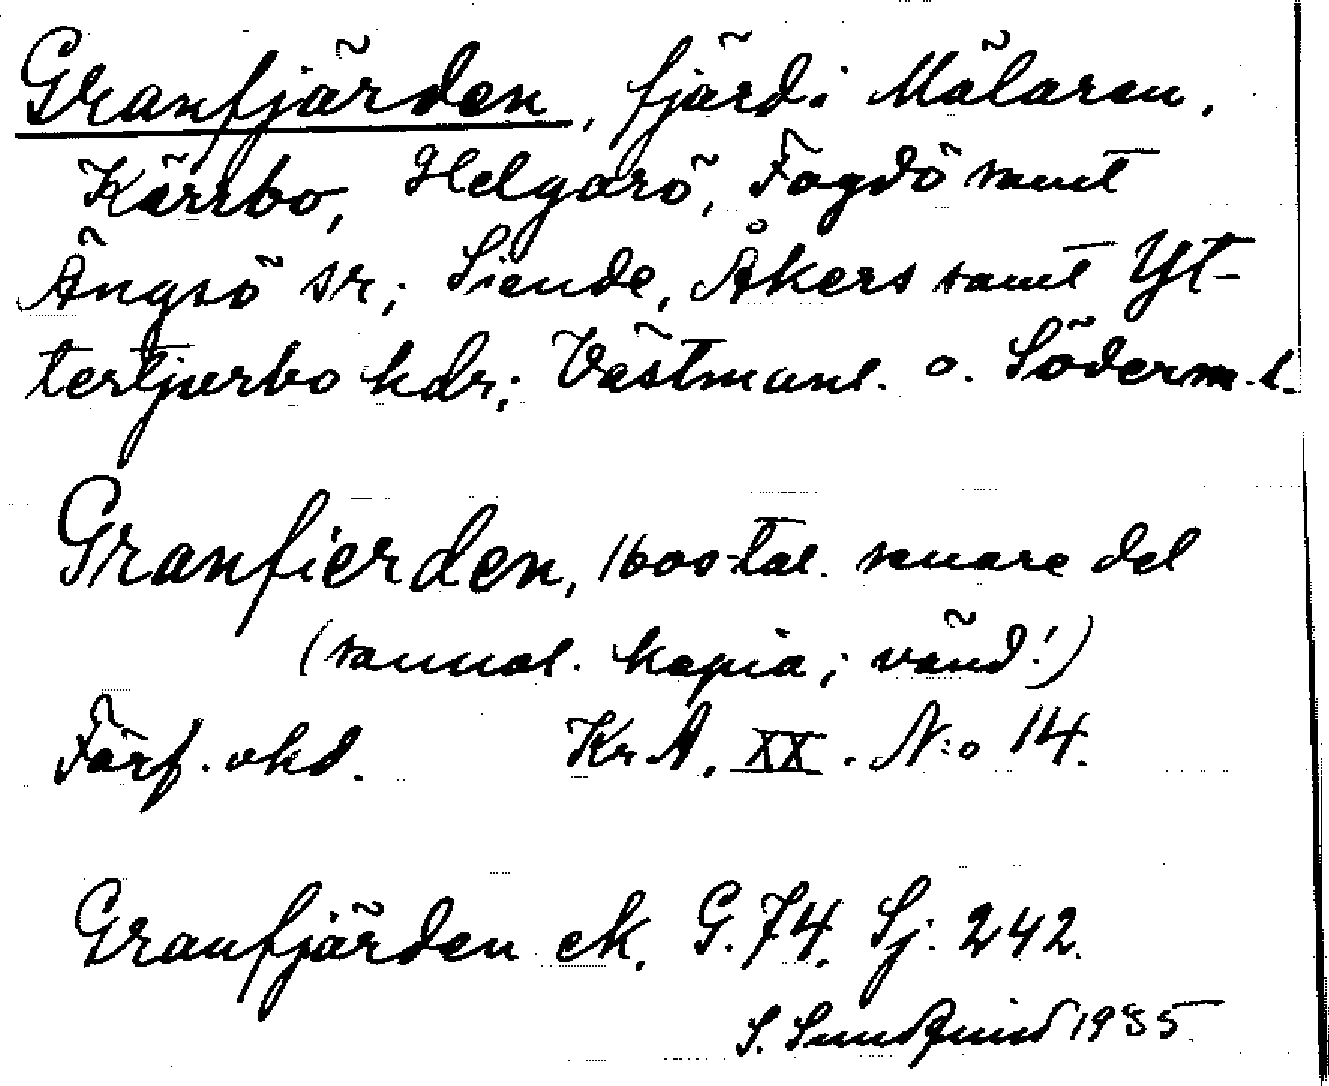 Granfjärden, fjärd i Mälaren.
Kärrbo, Helgarö, Fogdö samt
Ängsö sr; Siende, Åkers samt Yt-
tertjurbo hdr; Västmanl. o. Söderm. l.
Granfierden, 1600-tal. senare del
(samml. kopia; vänd!)
Förf. okd. Kr A, XX. N:o 14.
Granfjärden ek. G. 74. Sj. 242.
S. Sundqvist 1935